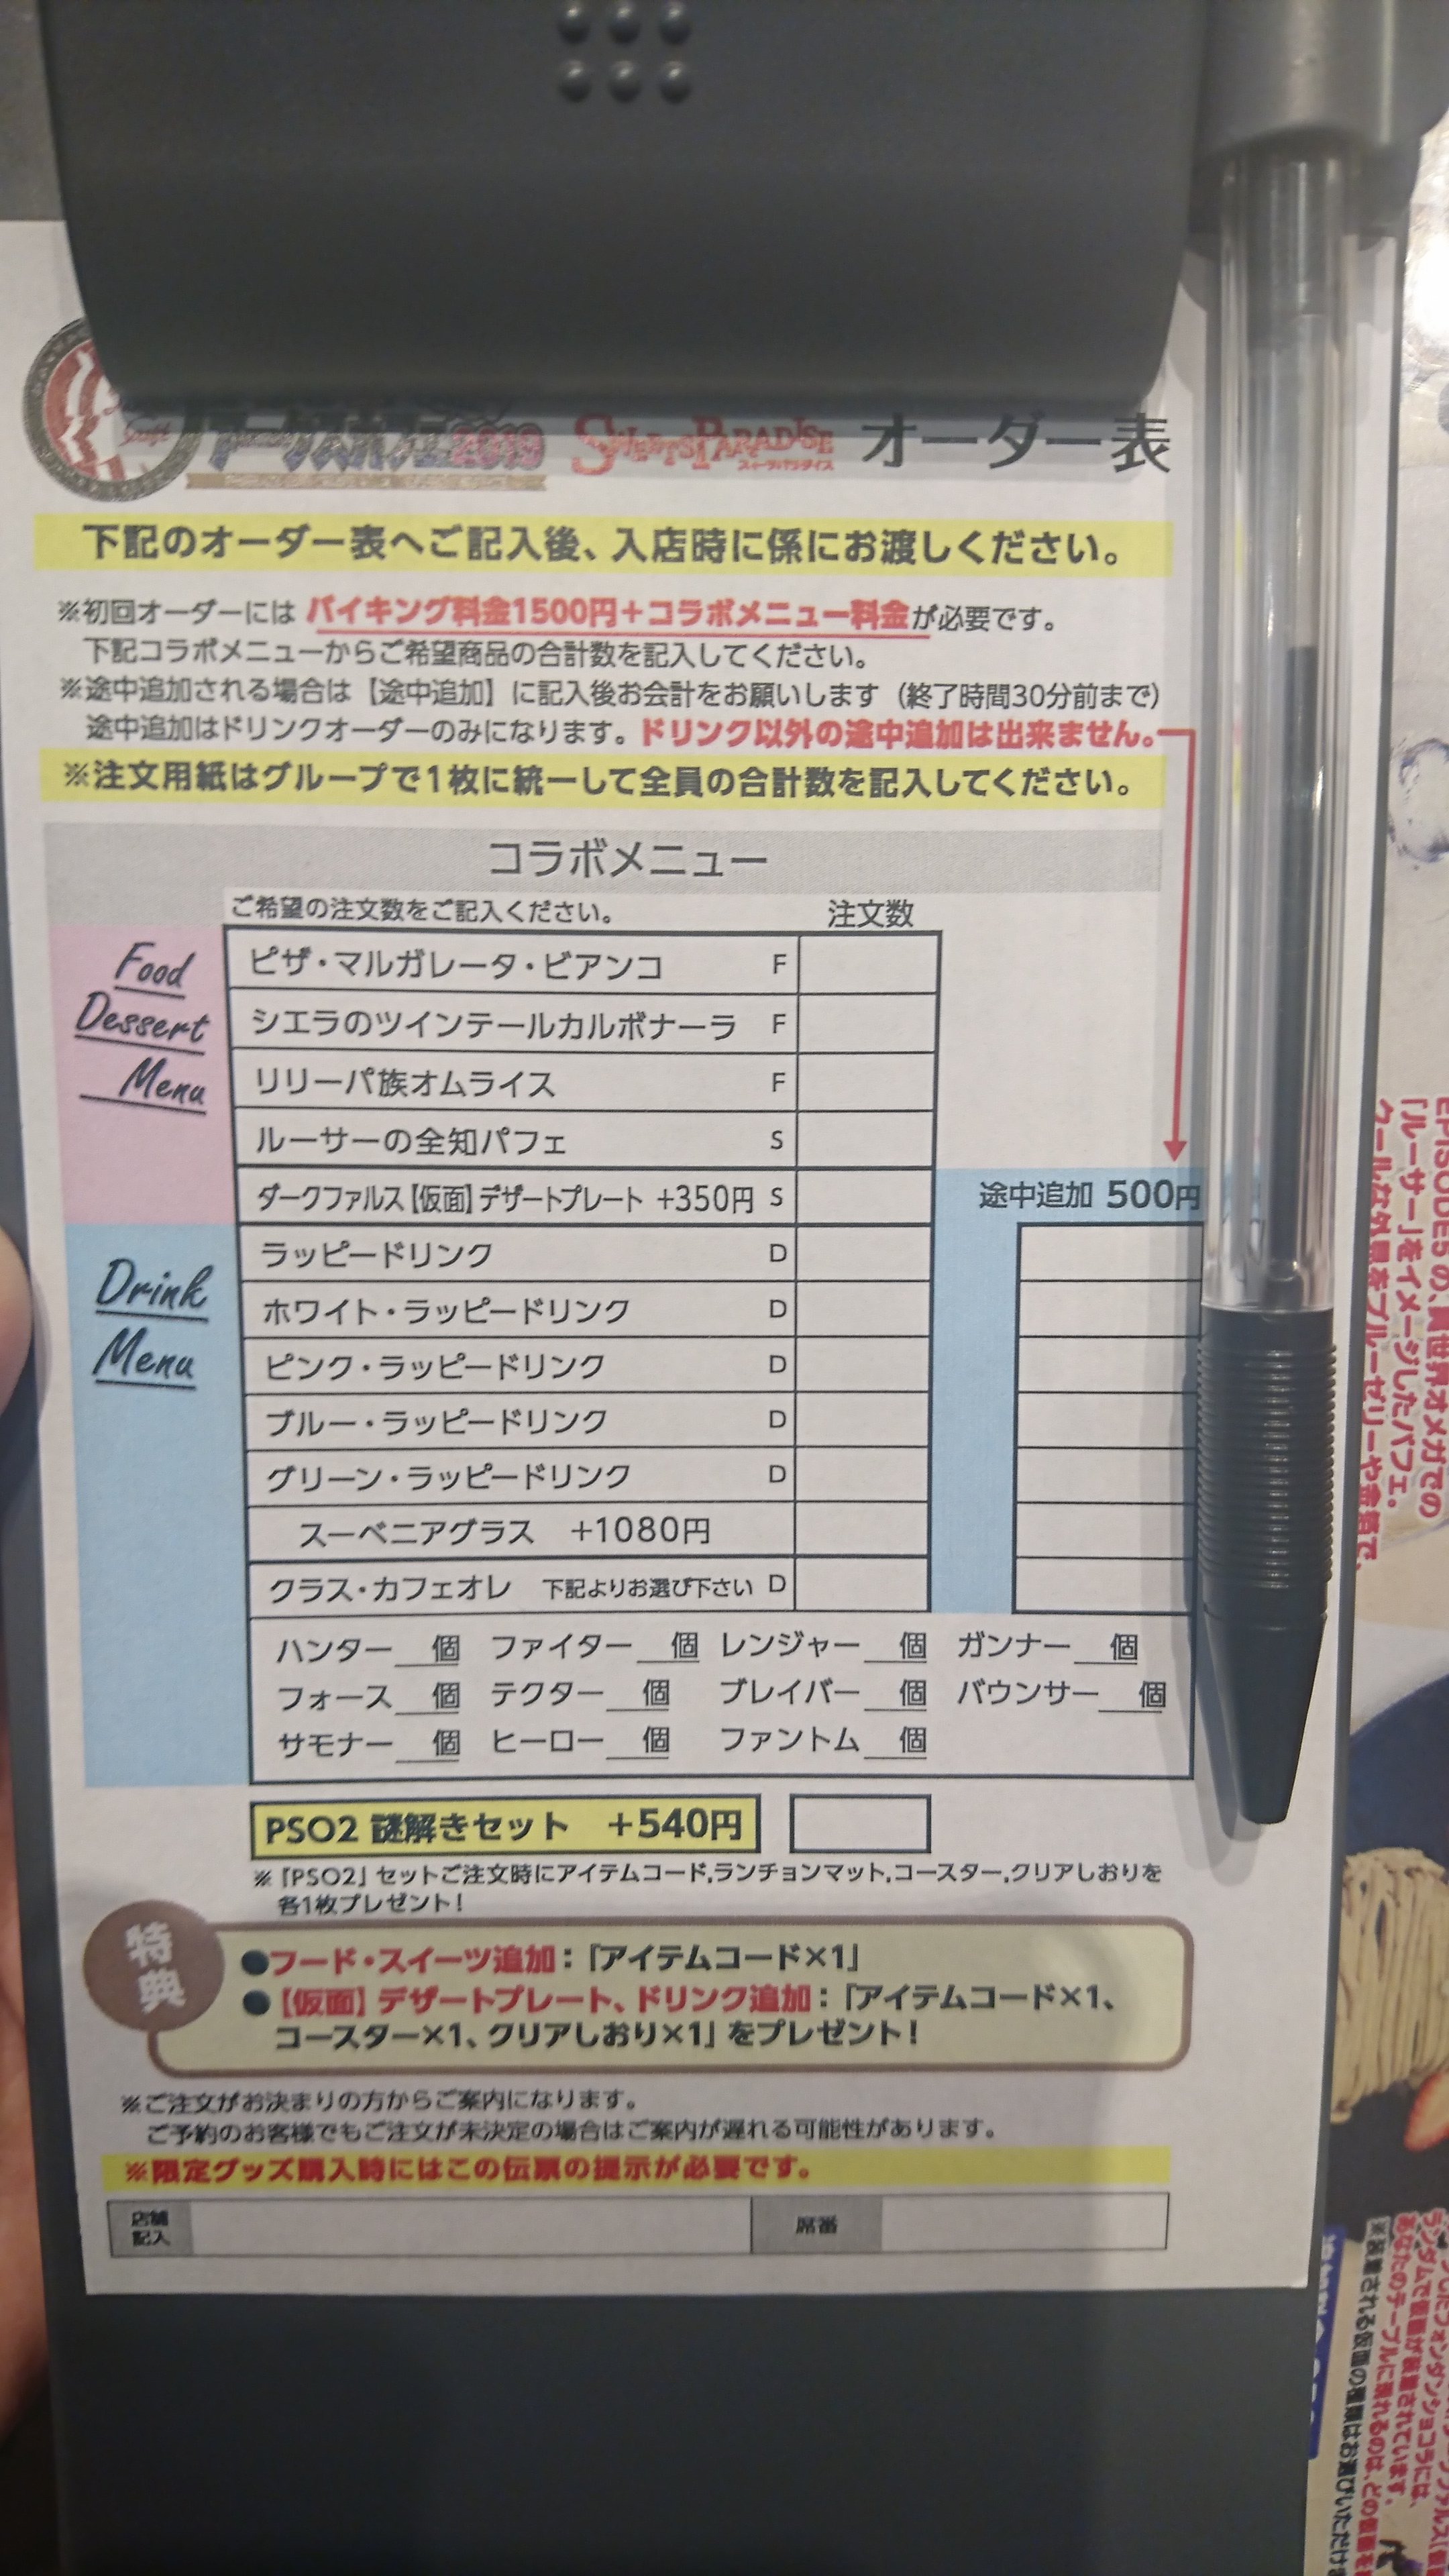 アークスカフェ2019 SWEETS PARADISE スイーツパラダイス オーダー表
下記のオーダー表へご記入後、入店時に係にお渡しください。
※初回オーダーには バイキング料金1500円＋コラボメニュー料金が必要です。
下記コラボメニューからご希望商品の合計数を記入してください。
※途中追加される場合は【途中追加】に記入後お会計をお願いします（終了時間30分前まで）
途中追加はドリンクオーダーのみになります。ドリンク以外の途中追加は出来ません。
※注文用紙はグループで1枚に統一して全員の合計数を記入してください。
コラボメニュー
ご希望の注文数をご記入ください。 注文数
Food
Dessert
Menu
ピザ・マルガレータ・ビアンコ F
シエラのツインテールカルボナーラ F
リリーパ族オムライス F
ルーサーの全知パフェ S
ダークファルス【仮面】デザートプレート +350円 S
途中追加 500円
Drink
Menu
ラッピードリンク D
ホワイト・ラッピードリンク D
ピンク・ラッピードリンク D
ブルー・ラッピードリンク D
グリーン・ラッピードリンク D
スーベニアグラス +1080円
クラス・カフェオレ 下記よりお選び下さい D
ハンター__個 ファイター__個 レンジャー__個 ガンナー__個
フォース__個 テクター__個 ブレイバー__個 バウンサー__個
サモナー__個 ヒーロー__個 ファントム__個
PSO2 謎解きセット +540円
※「PSO2」セットご注文時にアイテムコード,ランチョンマット,コースター,クリアしおりを
各1枚プレゼント！
特典
●フード・スイーツ追加：「アイテムコード×1」
●【仮面】デザートプレート、ドリンク追加：「アイテムコード×1、
コースター×1、クリアしおり×1」をプレゼント！
※ご注文がお決まりの方からご案内になります。
ご予約のお客様でもご注文が未決定の場合はご案内が遅れる可能性があります。
※限定グッズ購入時にはこの伝票の提示が必要です。
店舗
記入
席番
EPISODE5の、異世界オメガでの
「ルーサー」をイメージしたパフェ。
クールな外見をブルーゼリーや金箔で、
ランダムで仮面が装着されています。
あなたのテーブルに現れるのは、どの仮面を
※装着される仮面の種類はお選びいただけ